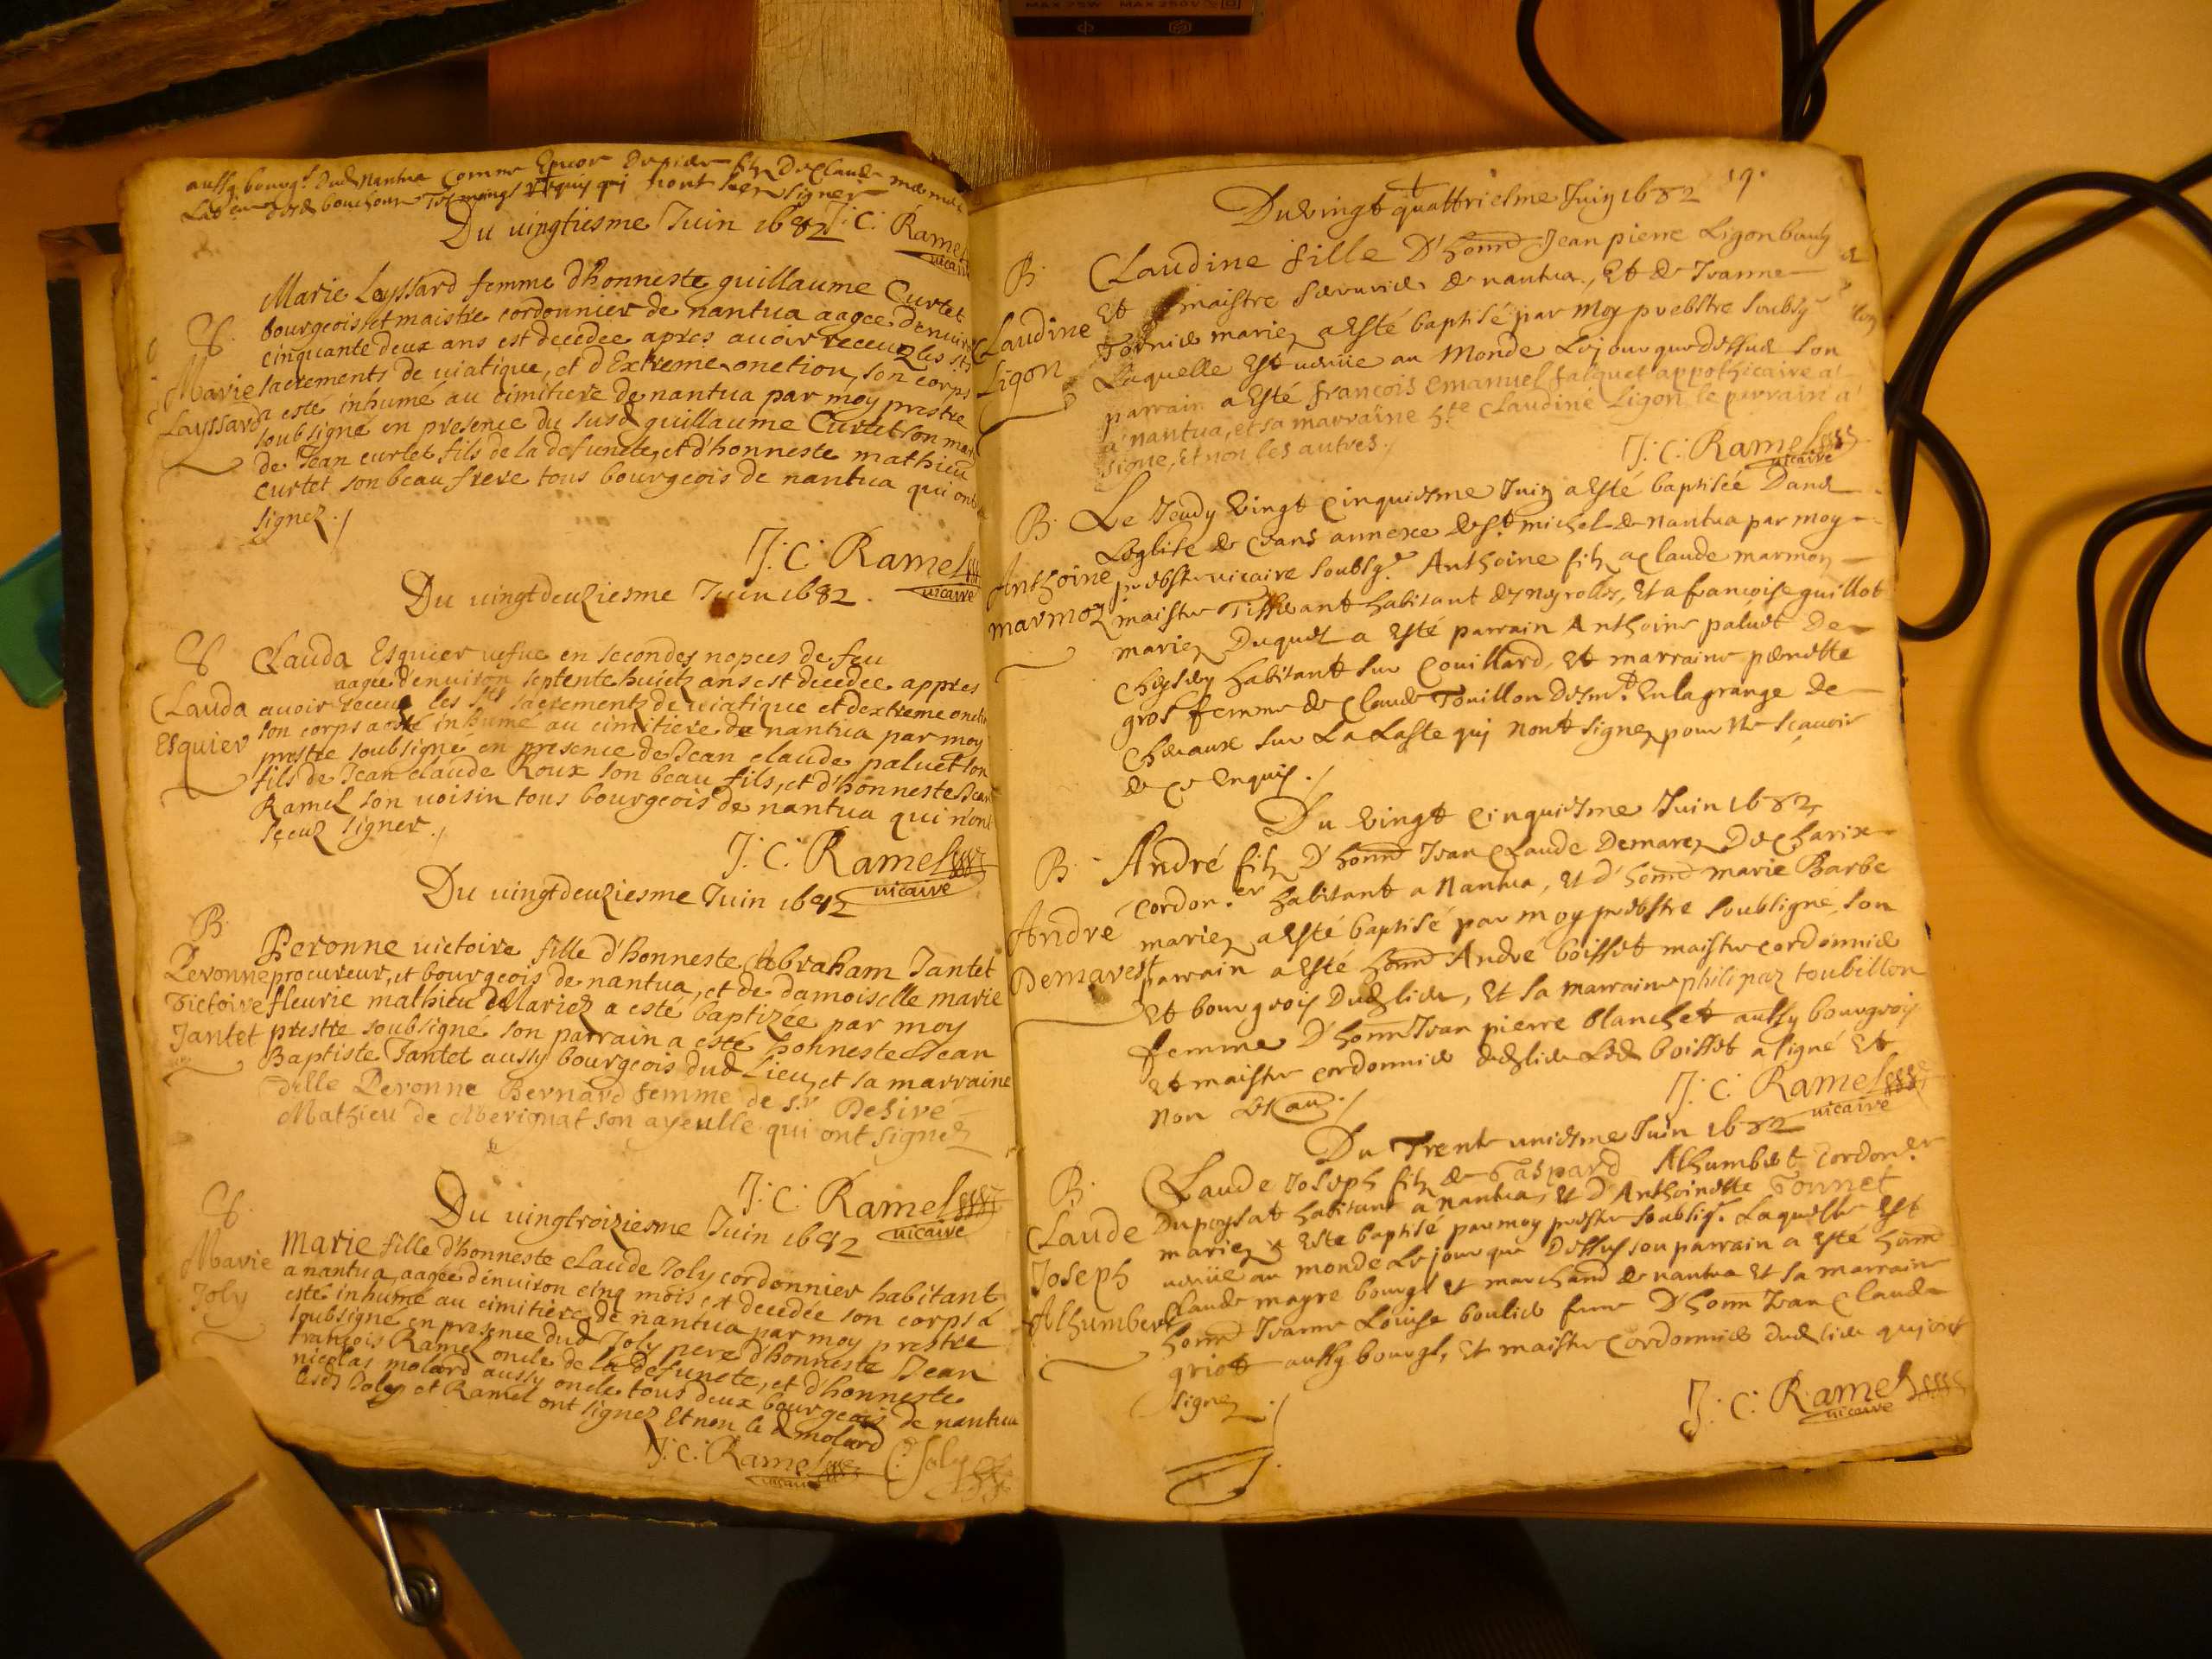 MAX 75W MAX 250V
aussy bourg.s dud Nantua Comme
signer
Du vingtiesme Juin 1682 J: C: Ramel
vicaire
Marie Layssard femme d'honneste guillaume Curtet
bourgeois, et maistre cordonnier de nantua aagée d'enuiron
cinquante deux ans est decedée apres auoir receuz les sts
Marie sacrements de uiatique, et d'Extreme onction, son corps
Layssard a esté inhumé au cimitiere de nantua par moy prestre
soubsigné en presence du susd guillaume Curtet son mari
de Jean curtet fils de la defuncte, et d'honneste mathieu
Curtet son beau frere tous bourgeois de nantua qui ont
signez ./
J: C: Ramel
vicaire
Du uingtdeuziesme Juin 1682.
Clauda Esquier uefue en secondes nopces de feu
aagée d'enuiron septente huict ans est decedée appres
Clauda auoir receuz les sts sacrements de uiatique et d'extreme onction
Esquier son corps a esté inhumé au cimitiere de nantua par moy
prestre soubsigné en presence de Jean claude paluet son
fils de Jean claude Roux son beau fils, et d'honneste Jean
Ramel son uoisin tous bourgeois de nantua qui n'ont
sceuz signer ./
J: C: Ramel
vicaire
Du uingtdeuziesme Juin 1682
B.
Peronne uictoire fille d'honneste Abraham Jantet
Peronne procureur, et bourgeois de nantua, et de damoiselle marie
Victoire fleurie mathieu Mariez a esté baptizée par moy
Jantet prestre soubsigné son parrain a esté honneste Jean
Baptiste Jantet aussy bourgeois dud Lieu, et sa marraine
d'elle Peronne Bernard femme de s.r Desiré
Mathieu de Merignat son ayeulle qui ont signéz
J: C: Ramel
vicaire
Du uingtroiziesme Juin 1682
Marie Marie fille d'honneste Claude Joly cordonnier habitant
Joly a nantua, aagée d'enuiron cinq mois est decedée son corps a
esté inhumé au cimitiere de nantua par moy prestre
soubsigné en presence dud Joly pere d'honneste Jean
francois Ramel oncle de la defuncte, et d'honneste
nicolas molard aussy oncle tous deux bourgeois de nantua
lesd Joly et Ramel ont signez Et non le d molard
J: C: Ramel C: Joly
vicaire
19.
Du vingt quattriesme Juin 1682
B. Claudine fille D'honn Jean pierre Ligon bourg
Et maistre serrurier de nantua, Et de Jeanne
Claudine Tornier mariez a Esté baptisé par Moy prebstre soubsg
Ligon Laquelle Est venüe au Monde Le jour que dessus son
parrain a Esté francois Emanuel falquet appothicaire a
a nantua, et sa marraine h.te Claudine Ligon le parrain a
signé, Et non les autres./
J: C: Ramel
vicaire
B. Le Jeudy vingt cinquiesme Juin a Esté baptisée Dans
Leglise de ceans annexe de St michel de Nantua par moy
Anthoine prebstre vicaire soubsg.é Anthoine filz a claude marmoz
marmoz maistre Tisserant habitant de neyrolles, Et a françoise guillot
mariez Duquel a Esté parrain Anthoine paluet De
habitant sur Couillard, Et marraine pernette
gros femme de Claude Touillon En la grange de
Cheuaux sur La Laste qui n'ont signez pour Ne sçauoir
de ce Enquis ./
Du vingt cinquiesme Juin 1682
B. André filz D'honn Jean Claude Demarez De Charix
cordon.er habitant a Nantua, Et d'honn marie Barbe
André mariez a Esté baptisé par moy prebstre soubsigné, son
Demarest parrain a Esté honn André boisset maistre cordonnier
Et bourgeois Dud lieu, Et sa marraine philipaz toubillon
femme D'honn Jean pierre blanchet aussy bourgeois
Et maistre cordonnier dud lieu Led boisset a signé Et
non Les au. ./
J: C: Ramel
vicaire
Du Trente uniesme Juin 1682
B. Claude Joseph filz de Gaspard Alhumbet Cordon.er
Dupoysat habitant a nantua, Et D'Anthoinette Tonnet
Claude mariez Esté baptisé par moy prestre soubsig.é Laquelle Est
Joseph venüe au monde Le jour que Dessus son parrain a Esté honn
Alhumbert Claude mayre bourgs Et marchand de nantua Et sa marraine
honn Jeanne Louise boulier fame D'honn Jean Claude
griot aussy bourgs, Et maistre cordonnier dud lieu qui ont
signez ./
J: C: Ramel
vicaire